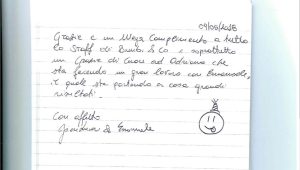 09/05/2025
Grazie e un Mega Complimento a tutto
lo Staff di Bimbi & Co e soprattutto
un Grazie di Cuore ad Adriana che
sta facendo un gran lavoro con Emanuele,
il quale sta portando a casa grandi
risultati.
Con affetto
di Emanuele